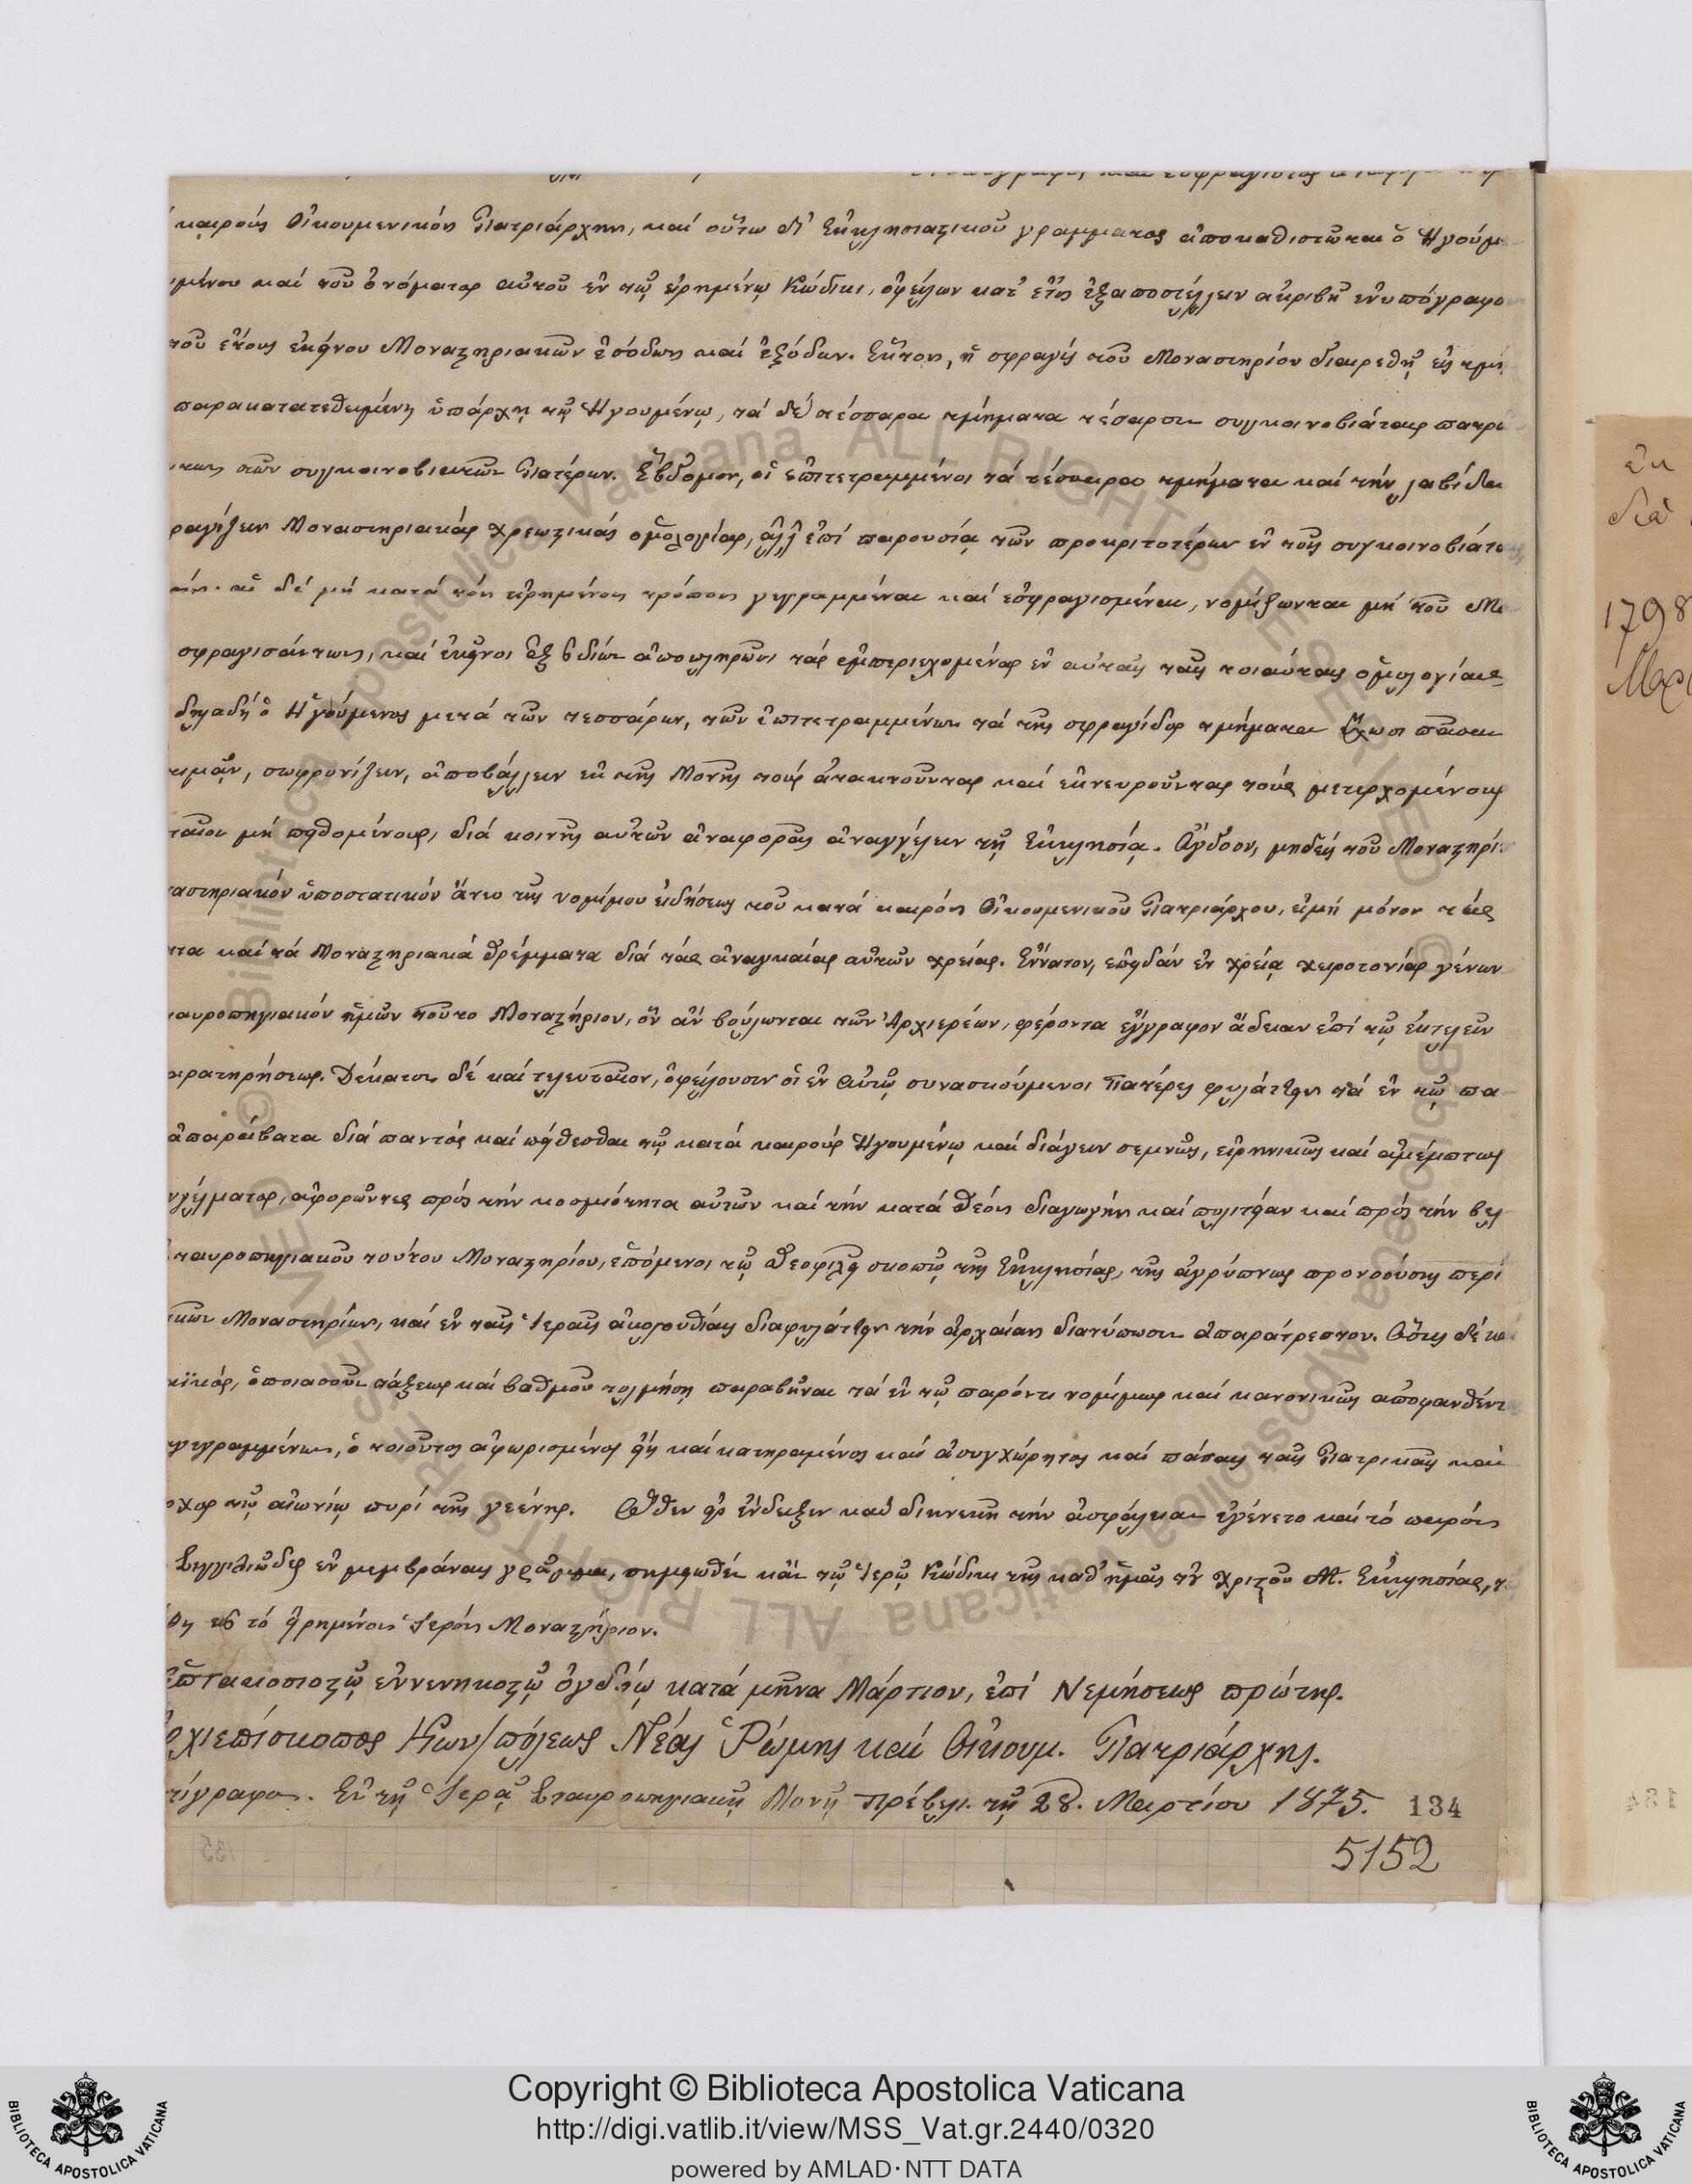 καιρούς Οἰκουμενικόν Πατριάρχην, καί οὕτω δι' Ἐκκλησιαστικοῦ γράμματος ἀποκαθιστῶται ὁ Ἡγούμε
μένου καί τοῦ ὀνόματος αὐτοῦ ἐν τῷ εἰρημένῳ Κώδικι, ὀφείλων κατ' ἔτος ἐξαποστέλλειν ἀκριβῆ ἐνυπόγραφο
τοῦ ἔτους ἐκείνου Μοναστηριακῶν ἐσόδων καί ἐξόδων. Ἕκτον, ἡ σφραγίς τοῦ Μοναστηρίου διαιρεθῇ εἰς τμή
παρακατατεθειμένη ὑπάρχῃ τῷ Ἡγουμένῳ, τά δέ τέσσαρα τμήματα τέσαρσι συγκοινοβιάταις πατρά
των συγκοινοβιατῶν Πατέρων. Ἕβδομον, οἱ ἐπιτετραμμένοι τά τέσσαρα τμήματα καί τήν λαβίδα
ραγίζειν Μοναστηριακάς χρεωστικάς ὁμολογίας, ἀλλ' ἐπί παρουσίᾳ τῶν προκριτοτέρων ἐν τοῖς συγκοινοβιάτα
αἱ δέ μή κατά τόν εἰρημένον τρόπον γεγραμμέναι καί ἐσφραγισμέναι, νομίζωνται μή τοῦ Μο
σφραγισάντων, καί ἐκεῖνοι ἐξ ἰδίων ἀποπληρῶσι τάς ἐμπεριεχομένας ἐν αὐταῖς ταῖς τοιαύταις ὁμολογίαις
δηλαδή ὁ Ἡγούμενος μετά τῶν τεσσάρων, τῶν ἐπιτετραμμένων τά τῆς σφραγίδος τμήματα ἔχωσι πᾶσαν
τιμᾷν, σωφρονίζειν, ἀποβάλλειν ἐκ τῆς Μονῆς τούς ἀτακτοῦντας καί ἐκνευροῦντας τούς μετερχομένους
ταῖσι μή πειθομένους, διά κοινῆς αὐτῶν ἀναφορᾶς ἀναγγέλειν τῇ Ἐκκλησίᾳ. Ὄγδοον, μηδείς τοῦ Μοναστηρί
αστηριακόν ὑποστατικόν ἄνευ τῆς νομίμου εἰδήσεως τοῦ κατά καιρόν Οἰκουμενικοῦ Πατριάρχου, εἰμή μόνον τάς
τα καί τά Μοναστηριακά θρέμματα διά τάς ἀναγκαίας αὐτῶν χρείας. Ἔννατον, ἐπειδάν ἐν χρείᾳ χειροτονίας γένων
αυροπηγιακόν ἡμῶν τοῦτο Μοναστήριον, ὅν ἄν βούλωνται τῶν Ἀρχιερέων, φέροντα ἔγγραφον ἄδειαν ἐπί τῷ ἐκτελεῖν
αρατηρήσεως. Δέκατον δέ καί τελευταῖον, ὀφείλουσιν οἱ ἐν αὐτῷ συνασκούμενοι Πατέρες φυλάττειν τά ἐν τῷ πα
ἀπαράβατα διά παντός καί πείθεσθαι τῷ κατά καιρούς Ἡγουμένῳ καί διάγειν σεμνῶς, εἰρηνικῶς καί ἀμέμπτως
γγέλματος, ἀφορῶντες πρός τήν κοσμιότητα αὐτῶν καί τήν κατά Θεόν διαγωγήν καί πολιτείαν καί πρός τήν βελ
ταυροπηγιακοῦ τούτου Μοναστηρίου, ἑπόμενοι τῷ θεοφιλεῖ σκοπῷ τῆς Ἐκκλησίας, τῆς ἀγρύπνως προνοούσης περί
των Μοναστηρίων, καί ἐν ταῖς Ἱεραῖς ἀκολουθίαις διαφυλάττειν τήν ἀρχαίαν διατύπωσιν ἀπαράτρεπτον. Ὅστις δέ κα
ϊκός, ὁποιασοῦν τάξεως καί βαθμοῦ τολμήσῃ παραβῆναι τά ἐν τῷ παρόντι νομίμως καί κανονικῶς ἀποφανθέντ
γεγραμμένων, ὁ τοιοῦτος ἀφωρισμένος εἴη καί κατηραμένος καί ἀσυγχώρητος καί πάσαις ταῖς Πατρικαῖς καί
οχος τῷ αἰωνίῳ πυρί τῆς γεέννης. Ὅθεν εἰς ἔνδειξιν καί διηνεκῆ τήν ἀσφάλειαν ἐγένετο καί τό παρόν
Σιγγιλιῶδες ἐν μεμβράναις γράμμα, σημειωθέν κἀν τῷ Ἱερῷ Κώδικι τῆς καθ' ἡμᾶς τοῦ Χριστοῦ Μ. Ἐκκλησίας,
θη εἰς τό εἰρημένον Ἱερόν Μοναστήριον.
ἑπτακοσιοστῷ ἐννενηκοστῷ ὀγδόῳ κατά μῆνα Μάρτιον, ἐπί Νεμήσεως πρώτης.
ρχιεπίσκοπος Κων/πόλεως Νέας Ῥώμης καί Οἰκουμ. Πατριάρχης.
τίγραφον. Ἐν τῇ Ἱερᾷ Σταυροπηγιακῇ Μονῇ Πρέβελι τῇ 28. Μαρτίου 1875. 134
5152
ἐκ
διὰ
1798
Μαρ
Copyright © Biblioteca Apostolica Vaticana
http://digi.vatlib.it/view/MSS_Vat.gr.2440/0320
powered by AMLAD·NTT DATA
BIBLIOTECA APOSTOLICA VATICANA
BIBLIOTECA APOSTOLICA VATICANA